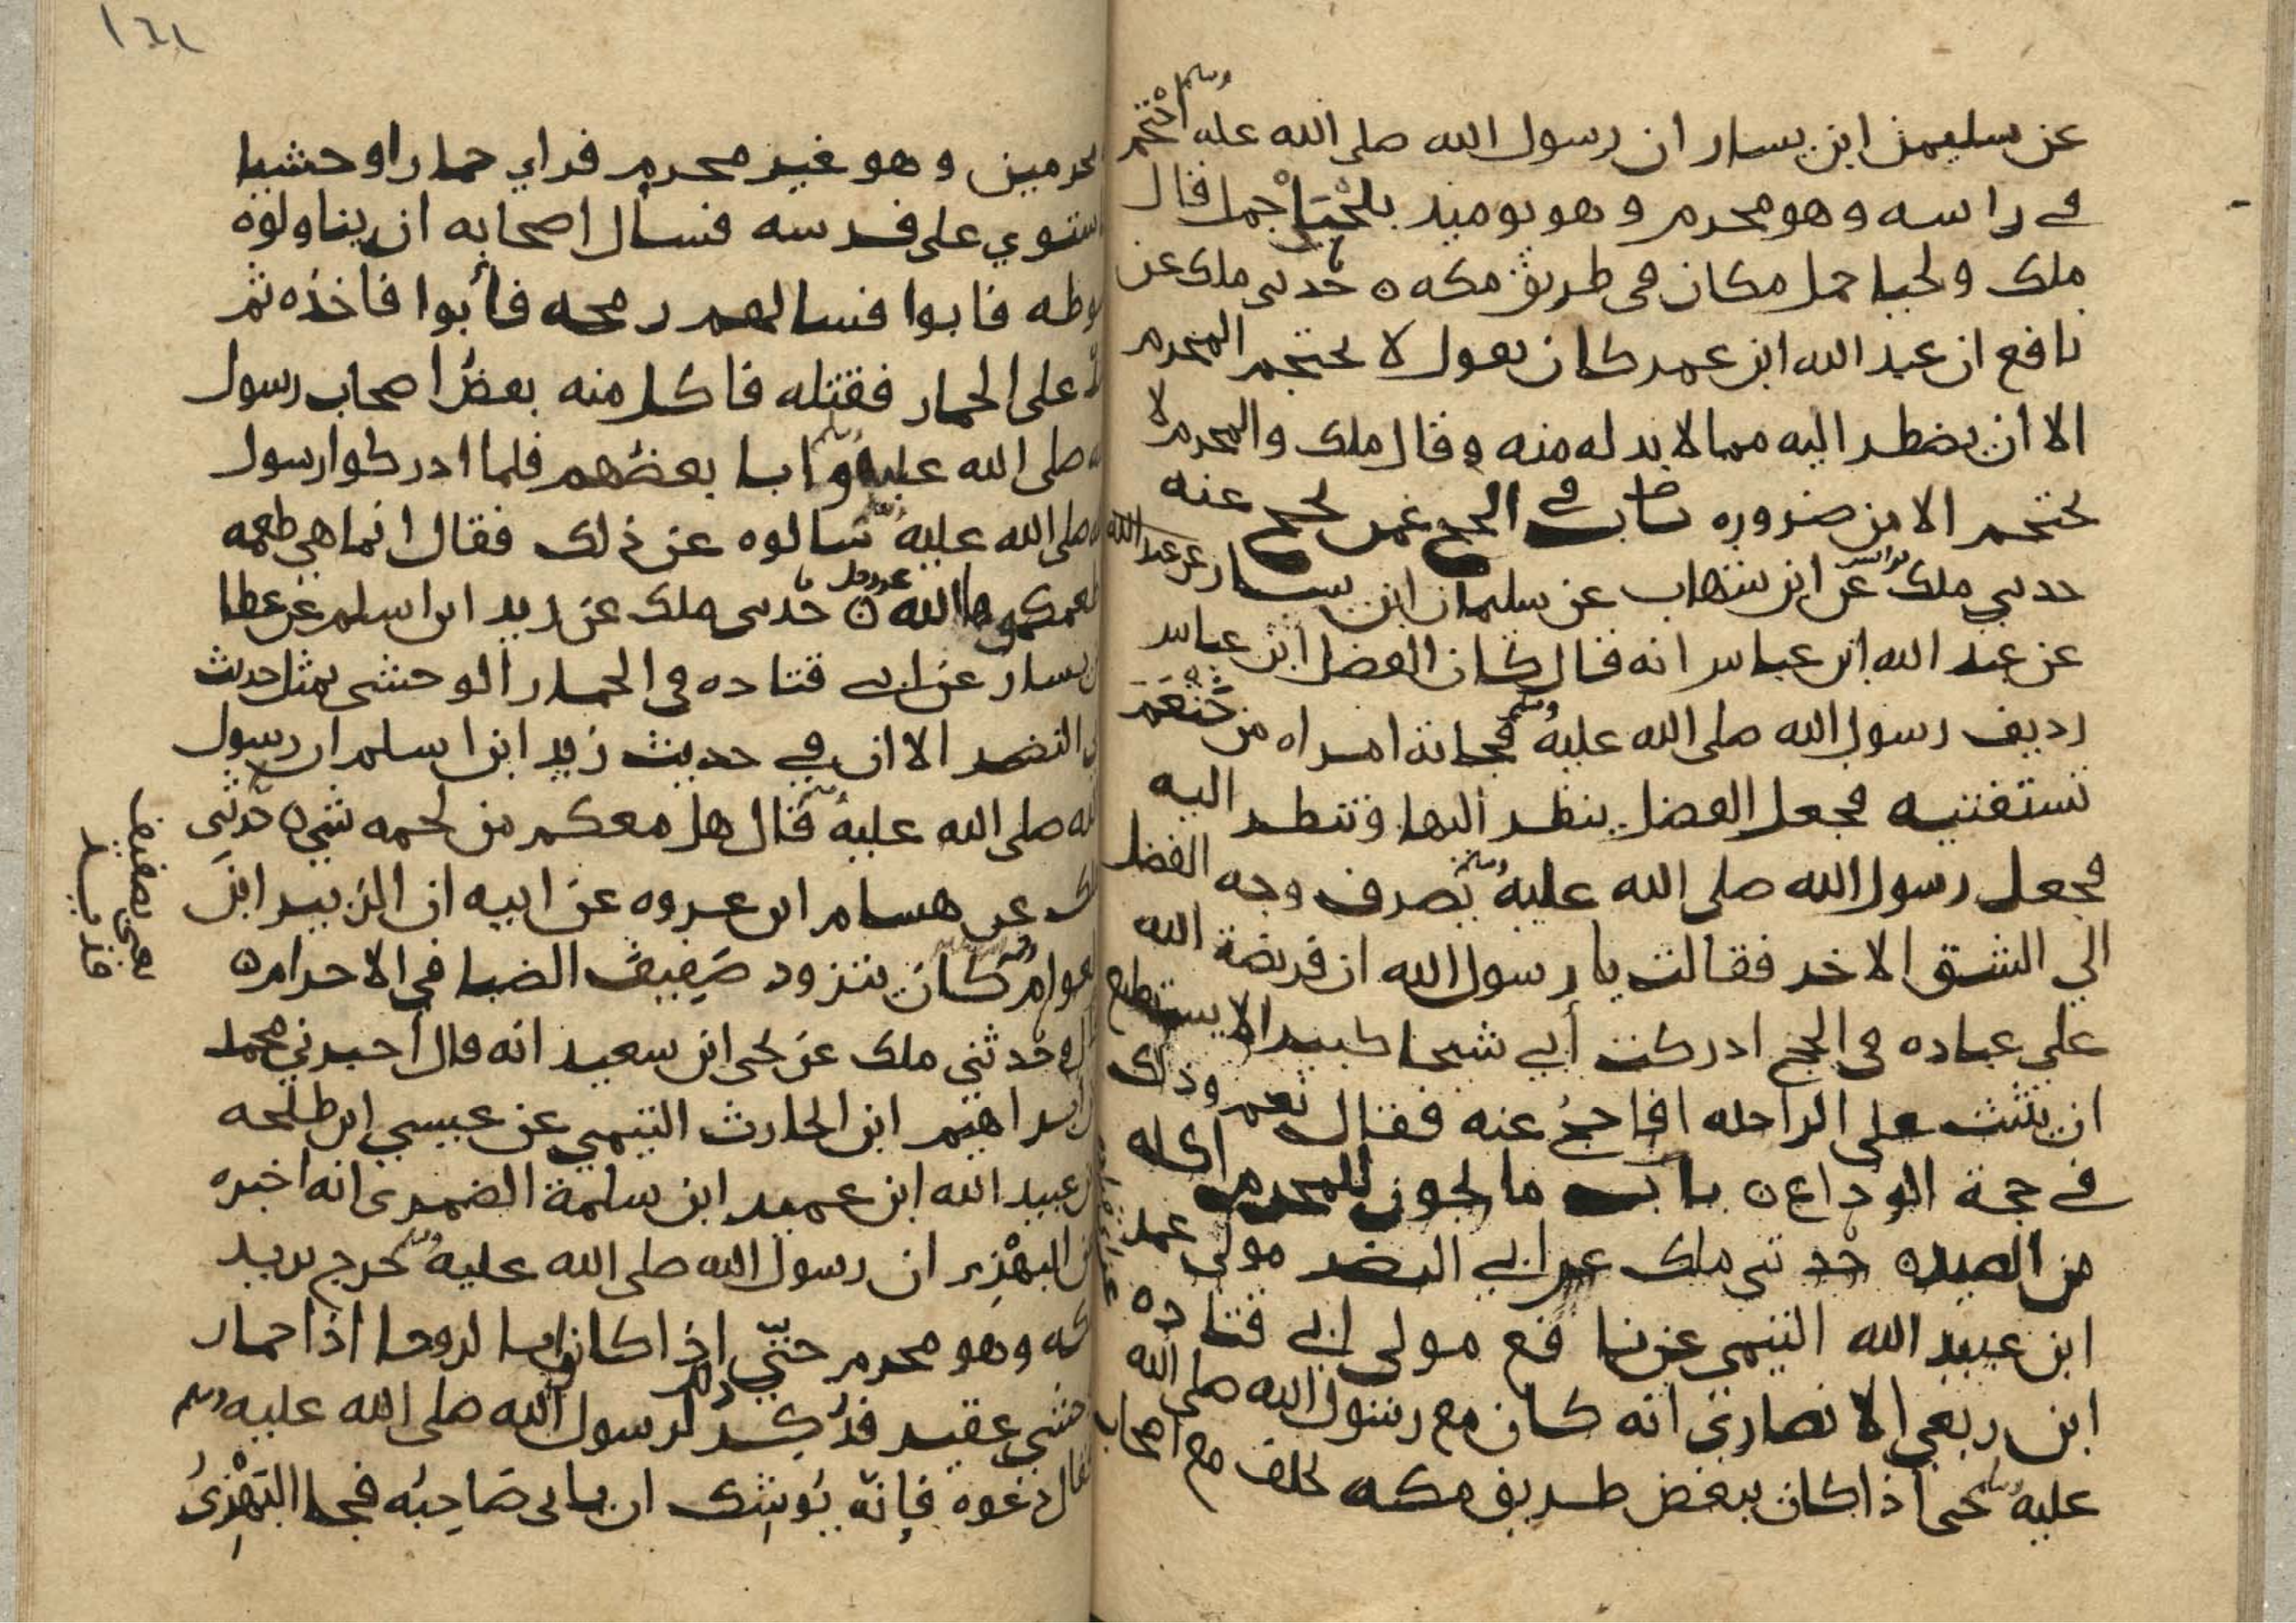 عن سليمن ابن يسار ان رسول الله صلى الله عليه وسلم احتجم
في راسه وهو محرم وهو يوميد بلحيا جمل قال
ملك ولحيا جمل مكان في طريق مكه ه حدثني ملك عن
نافع ان عبد الله ابن عمر كان يقول لا يحتجم المحرم
الا ان يضطر اليه مما لا بد له منه وقال ملك والمحرم لا
يحتجم الا من ضروره باب في الحج عمن يحج عنه
حدثني ملك عن ابن شهاب عن سليمان ابن يسار عن عبد الله
عن عبد الله ابن عباس انه قال كان الفضل ابن عباس
رديف رسول الله صلى الله عليه وسلم فجاته امراه من خثعم
تستفتيه فجعل الفضل ينظر اليها وتنظر اليه
فجعل رسول الله صلى الله عليه وسلم يصرف وجه الفضل
الي الشق الاخر فقالت يا رسول الله ان فريضة الله
علي عباده في الحج ادركت أبي شيخا كبيرا لا يستطيع
ان يثبت على الراحله افاحج عنه فقال نعم وذلك
في حجة الوداع ه باب ما يجوز للمحرم اكله
من الصيد ه حدثني ملك عن ابي النضر مولى عمر
ابن عبيد الله التيمي عن نافع مولى ابي قتاده
ابن ربعي الانصاري انه كان مع رسول الله صلى الله
عليه وسلم حتى اذا كان ببعض طريق مكه تخلف مع اصحاب
١٤٨
محرمين وهو غير محرم فراي حمارا وحشيا
استوي على فرسه فسال اصحابه ان يناولوه
سوطه فابوا فسالهم رمحه فأبوا فاخذه ثم
على الحمار فقتله فاكل منه بعض اصحاب رسول
صلى الله عليه وسلم وابا بعضهم فلما ادركوا رسول
صلى الله عليه سالوه عن ذلك فقال انما هي طعمه
اطعمكموها الله عز وجل ه حدثني ملك عن زيد ابن اسلم عن عطا
بن يسار عن ابي قتاده في الحمار الوحشي بمثل حديث
ابي النضر الا ان في حديث زيد ابن اسلم ان رسول
الله صلى الله عليه وسلم قال هل معكم من لحمه شي ه حدثني
ملك عن هشام ابن عروه عن ابيه ان الزبير ابن
العوام كان يتزود صفيف الضبا في الاحرام ه
وحدثني ملك عن يحي ابن سعيد انه قال أخبرني محمد
بن ابراهيم ابن الحارث التيمي عن عيسي ابن طلحه
عن عبيد الله ابن عمير ابن سلمة الضمري انه اخبره
عن البهزي ان رسول الله صلى الله عليه وسلم خرج يريد
مكه وهو محرم حتي اذا كانوا بالروحا اذا حمار
وحشي عقير فذكر لرسول الله صلى الله عليه وسلم
فقال دعوه فإنه يوشك ان ياتى صاحبه فجا البهزي
يعني بصفيف
قديد